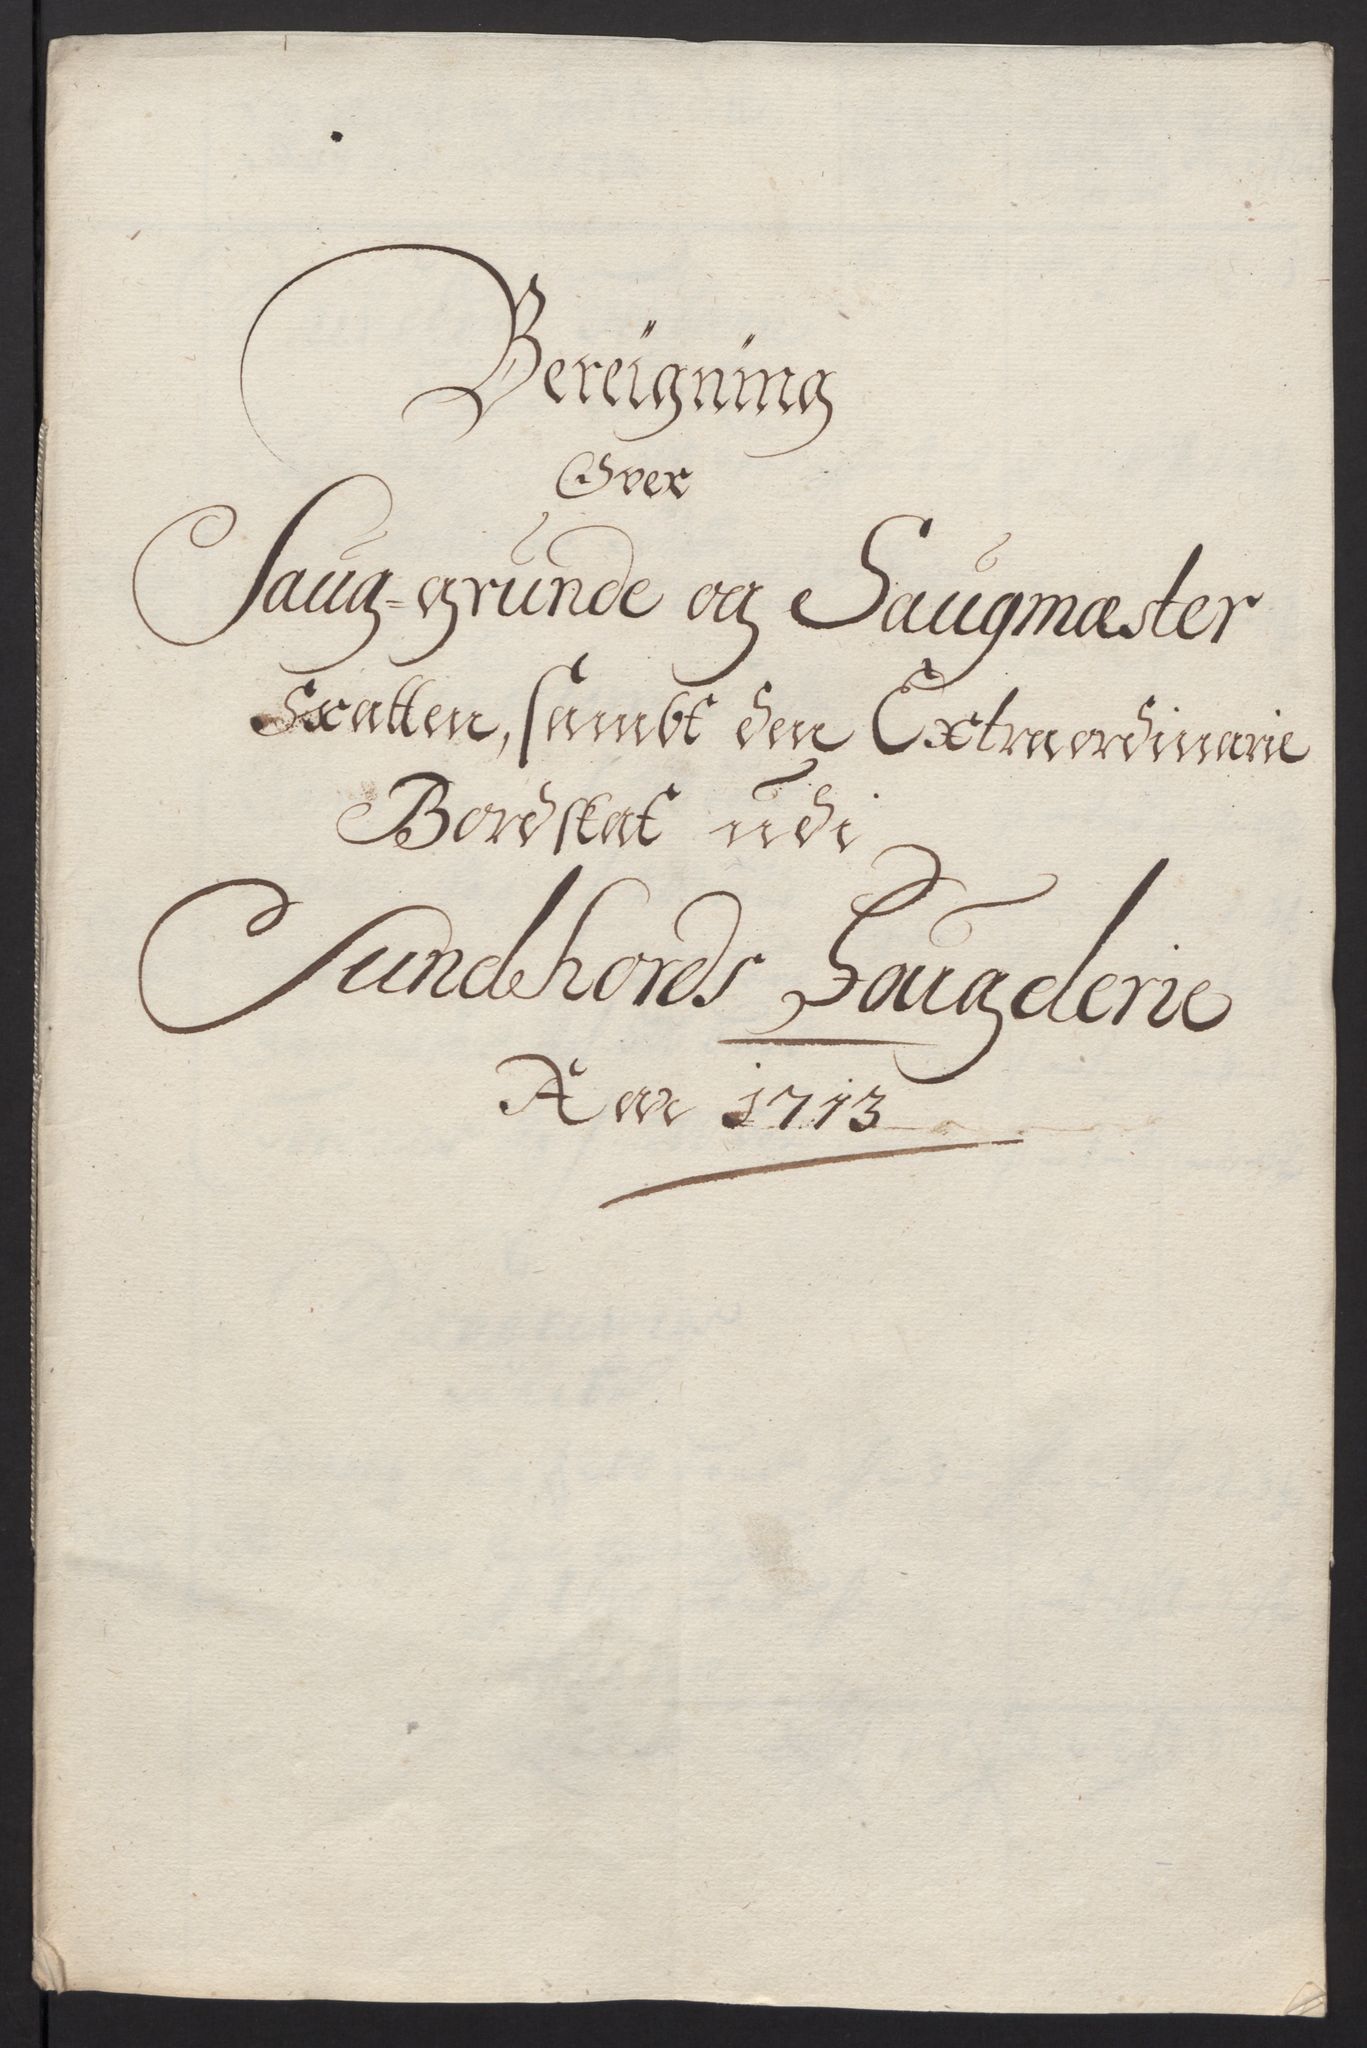 Bereigning
Over
Saug=grunde og Saugmæster
Skatten, sambt den Extraordinarie
Bordskat udi
Sundhords Fougderie
1713